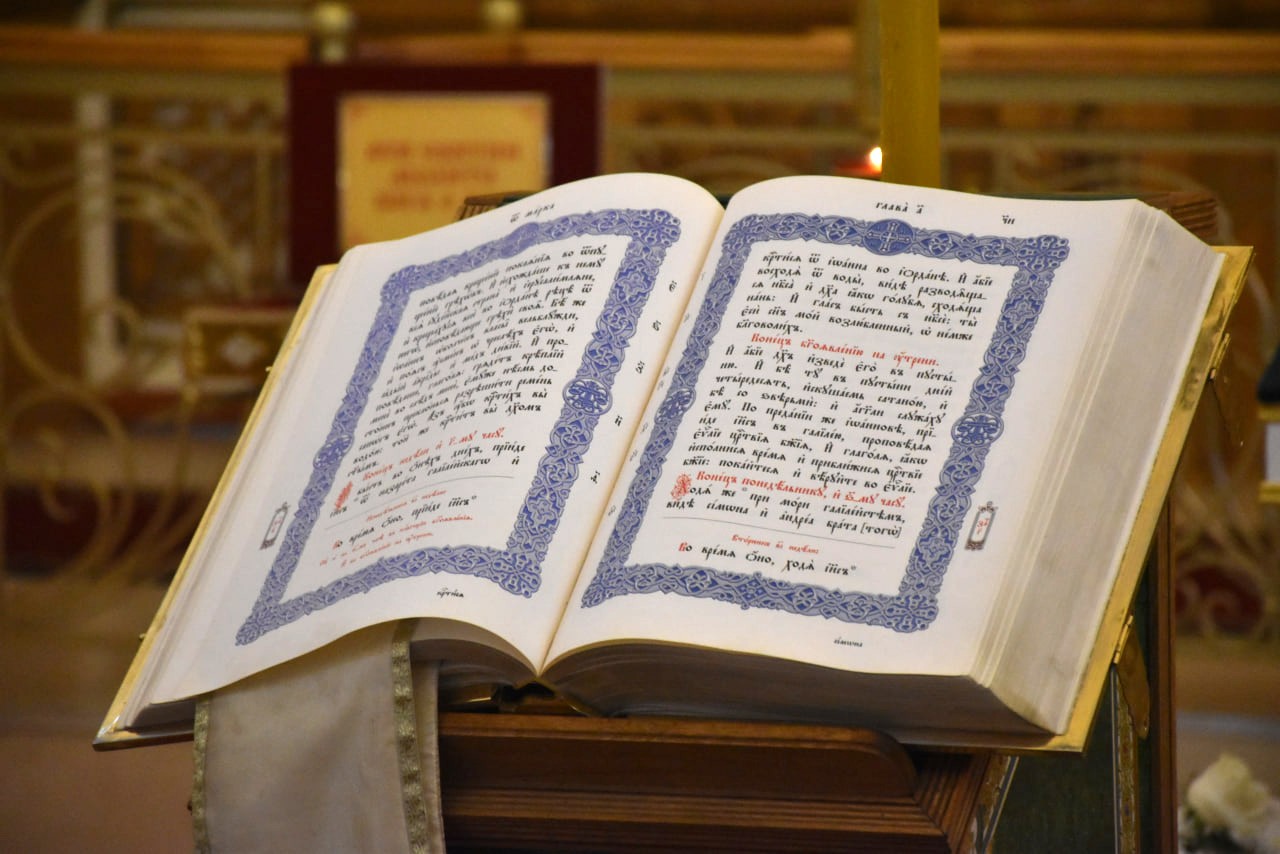 ѿ ма́рка
повѣ́дая креще́нїе покая́нїя во ѿпꙋ-
ще́нїе грѣхѡ́въ. И҆ и҆схожда́ше къ немꙋ̀
всѧ̀ і҆ꙋде́йскаѧ страна̀ и҆ і҆ерⷭ҇ли́млѧне,
и҆ креща́хꙋсѧ всѝ во і҆ѻрда́нѣ рѣцѣ̀ ѿ
негѡ̀, и҆сповѣ́дающе грѣхѝ своѧ̑. Бѣ́ же
і҆ѡа́ннъ ѡ҆болче́нъ власы̑ вельблꙋ̑жди,
и҆ по́ѧсъ ᲂу҆сме́нъ ѡ҆ чре́слѣхъ є҆гѡ̀, и҆
ꙗ҆ды́й прꙋ́жїе и҆ ме́дъ ди́вїй. И҆ про-
повѣ́даше, глаго́лѧ: грѧде́тъ крѣ́плїй
менє̀ во слѣ́дъ менє̀, є҆мꙋ́же нѣ́смь до-
сто́инъ прекло́ньсѧ разрѣши́ти реме́нь
сапѡ́гъ є҆гѡ̀. А҆́зъ ᲂу҆́бѡ крⷭ҇ти́хъ вы̀
водо́ю: то́й же крⷭ҇ти́тъ вы̀ дх҃омъ
ст҃ы́мъ.
Коне́цъ недѣ́ли и҆ г҃-мꙋ часꙋ̀.
И҆ бы́сть во ѻ҆́нѣхъ дне́хъ, прїи́де
і҆и҃съ ѿ назаре́та галїле́йскагѡ и҆
Во вре́мѧ ѻ҆́но, прїи́де і҆и҃съ
крⷭ҇ти́сѧ
глава̀ а҃
ч҃и
крⷭ҇ти́сѧ ѿ і҆ѡа́нна во і҆ѻрда́нѣ. И҆ а҆́бїе
восходѧ̀ ѿ воды̀, ви́дѣ разводѧ́ща-
сѧ нб҃са̀ и҆ дх҃а ꙗ҆́кѡ го́лꙋбѧ, сходѧ́ща
на́нь: И҆ гла́съ бы́сть съ нб҃сѐ: ты̀
є҆сѝ сн҃ъ мо́й возлю́бленный, ѡ҆ не́мже
бл҃говоли́хъ.
Коне́цъ бг҃оѧвле́нїю на ᲂу҆́трени.
И҆ а҆́бїе дх҃ъ и҆зведѐ є҆го̀ въ пꙋсты́-
ню. И҆ бѣ̀ тꙋ̀ въ пꙋсты́ни дні́й
четы́редесѧть, и҆скꙋша́емь сатано́ю, и҆
бѣ̀ со ѕвѣрьмѝ: и҆ а҆́гг҃ли слꙋжа́хꙋ
є҆мꙋ̀. По преда́нїи же і҆ѡа́нновѣ, прї-
и́де і҆и҃съ въ галїле́ю, проповѣ́даѧ
є҆ѵⷢ҇лїе црⷭ҇твїѧ бж҃їѧ, И҆ глаго́лѧ, ꙗ҆́кѡ
и҆спо́лнисѧ вре́мѧ и҆ прибли́жисѧ црⷭ҇твїе
бж҃їе: пока́йтесѧ и҆ вѣ́рꙋйте во є҆ѵⷢ҇лїе.
Коне́цъ понедѣ́льникꙋ, и҆ ѳ҃-мꙋ часꙋ̀.
Ходѧ́ же при мо́ри галїле́йстѣмъ,
ви́дѣ сі́мѡна и҆ а҆ндре́а бра́та [тогѡ̀]
Вто́рника в҃і недѣ́ли:
Во вре́мѧ ѻ҆́но, ходѧ̀ і҆и҃съ
сі́мѡна